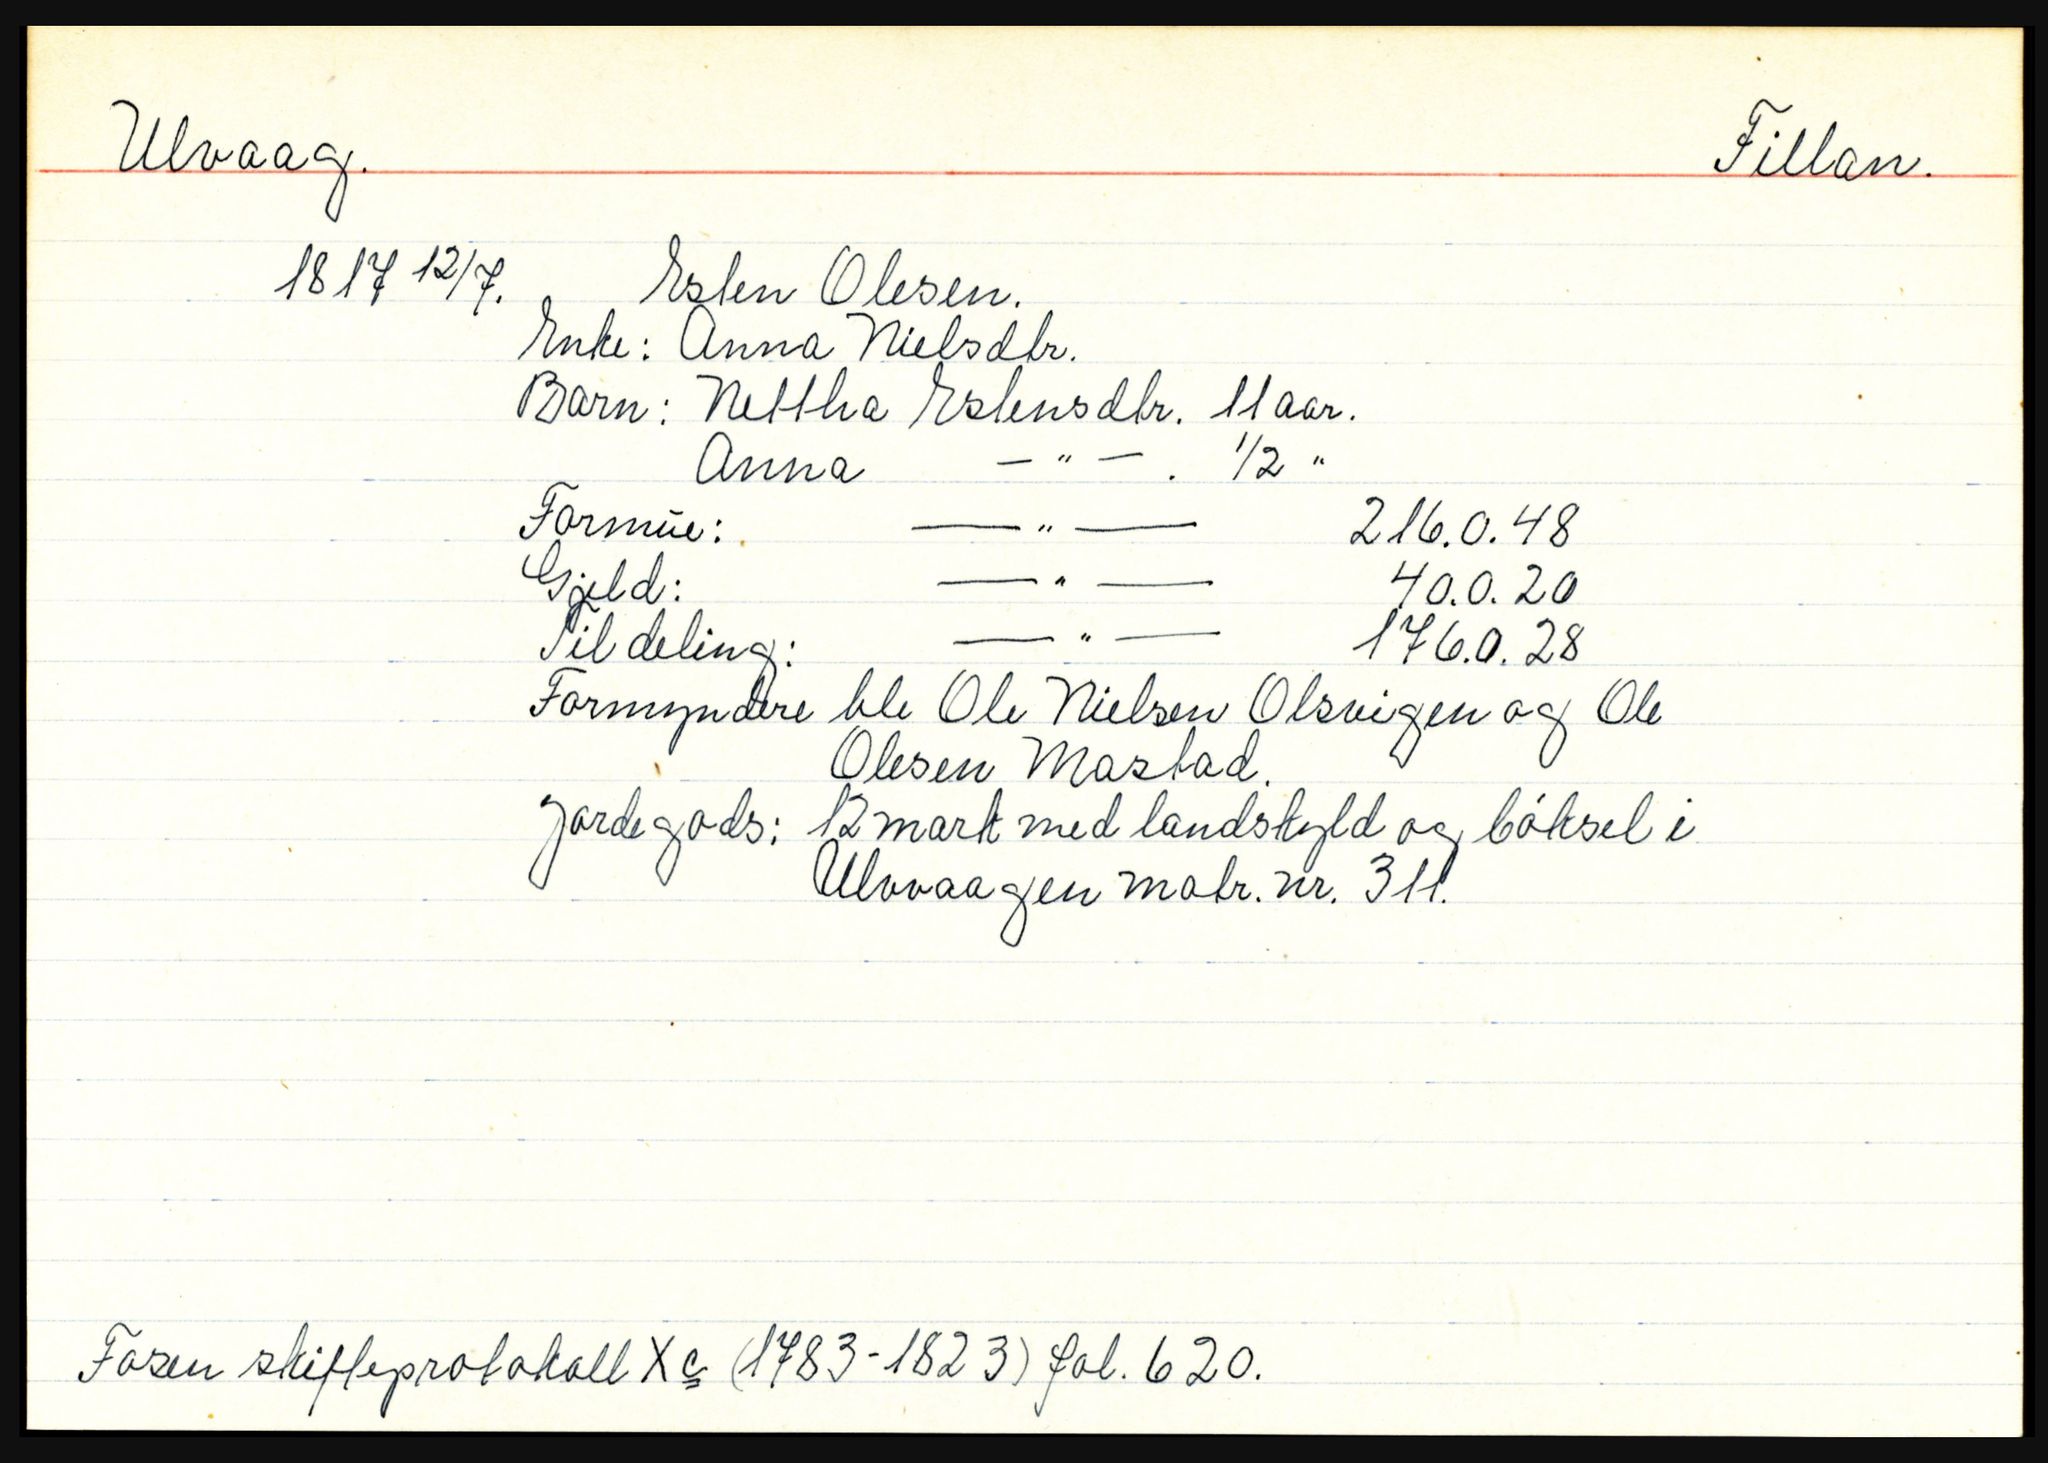 Ulvaag. Fillan.
1817 12/7. Esten Olesen.
Enke: Anna Nielsdtr.
Barn: Nettha Estensdtr. 11 aar.
Anna — " — . 1/2 "
Formue: — " — 216.0.48
Gjeld: — " — 40.0.20
Til deling: — " — 176.0.28
Formyndere ble Ole Nielsen Olsvigen og Ole
Olesen Mastad.
Jordegods: 12 mark med landskyld og bóksel i
Ulvvaagen matr. nr. 311.
Fosen skifteprotokoll X c (1783-1823) fol. 620.